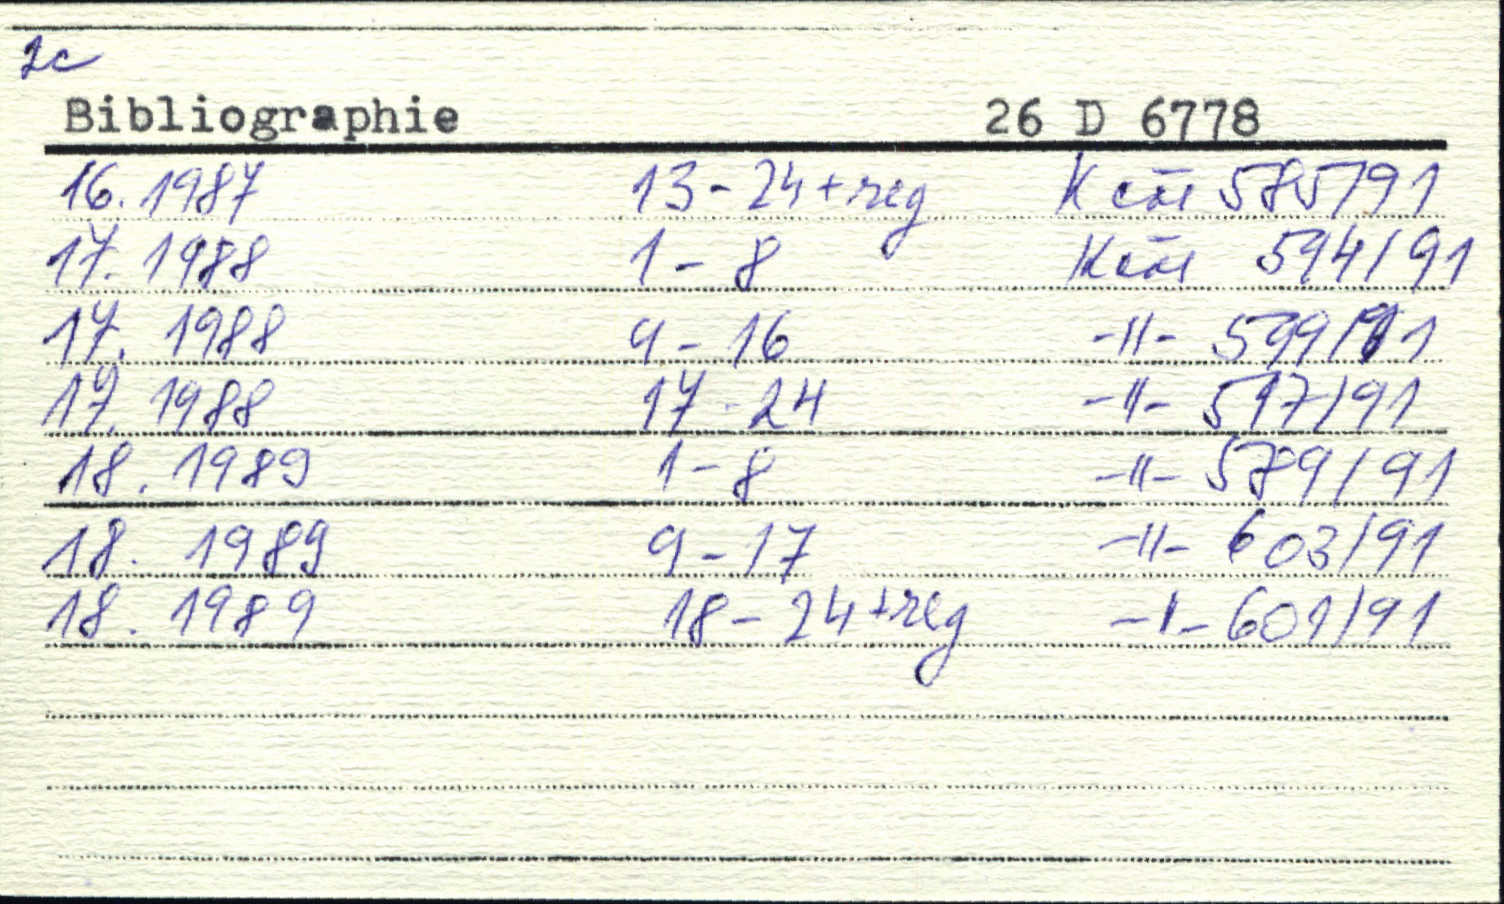 2c
Bibliographie 26 D 6778
16. 1987 13 - 24 + reg 585/91
17. 1988 1 - 8 594/91
17. 1988 9 - 16 -11- 599/91
17. 1988 17 - 24 -11- 597/91
18. 1989 1 - 8 -11- 589/91
18. 1989 9 - 17 -11- 603/91
18. 1989 18 - 24 + reg -1- 601/91